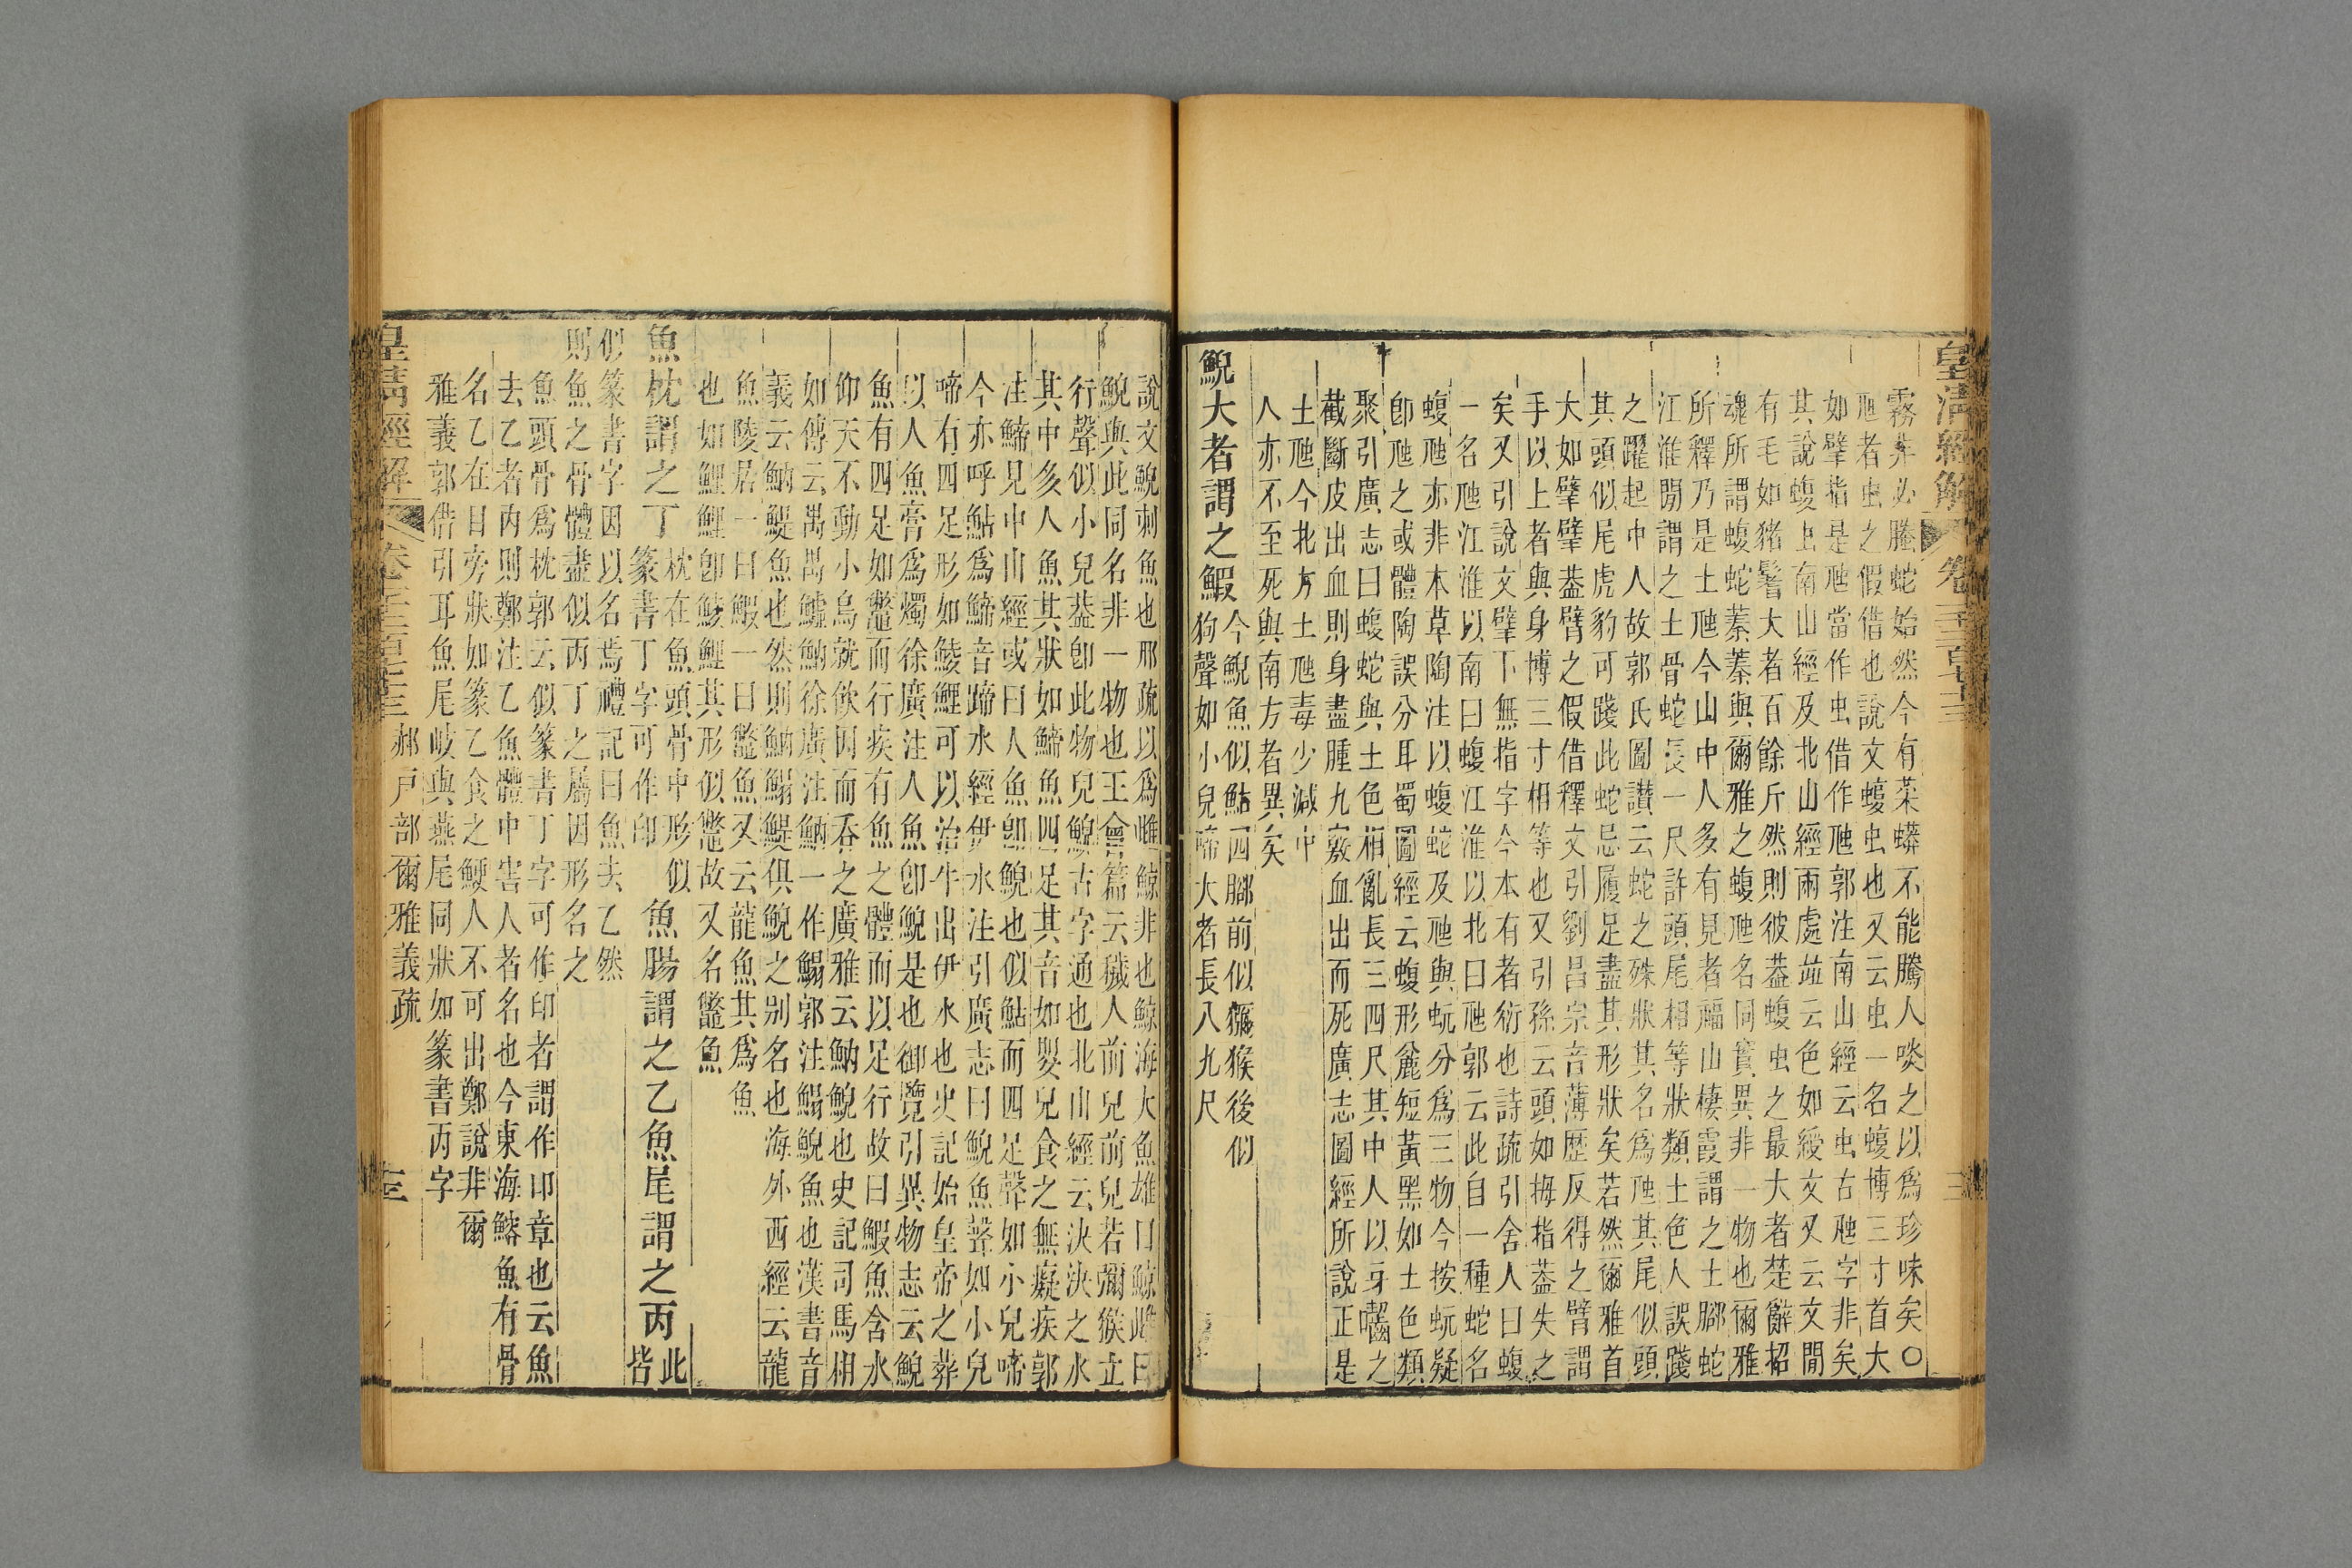 皇清經解 卷千二百七十三 三
霧非必螣蛇始然今有菜蟒不能騰人啖之以爲珍味矣〇
虺者虫之假借也說文蝮虫也又云虫一名蝮博三寸首大
如擘指是虺當作虫借作虺郭注南山經云虫古虺字非矣
其說蝮上南山經及北山經兩處竝云色如綬文又云文閒
有毛如豬鬐大者百餘斤然則彼葢蝮虫之最大者楚辭招
魂所謂蝮蛇蓁蓁與爾雅之蝮虺名同實異非一物也爾雅
所釋乃是土虺今山中人多有見者福山棲霞謂之土脚蛇
江淮閒謂之土骨蛇長一尺許頭尾相等狀類土色人誤踐
之躍起中人故郭氏圖讃云蛇之殊狀其名爲虺其尾似頭
其頭似尾虎豹可踐此蛇忌履足盡其形狀矣若然爾雅首
大如擘擘葢臂之假借釋文引劉昌宗音薄歷反得之臂謂
手以上者與身博三寸相等也又引孫云頭如拇指葢失之
矣又引說文擘下無指字今本有者衍也詩疏引舍人曰蝮
一名虺江淮以南曰蝮江淮以北曰虺郭云此自一種蛇名
蝮虺亦非本草陶注以蝮蛇及虺與蚖分爲三物今按蚖疑
卽虺之或體陶誤分耳蜀圖經云蝮形麄短黃黑如土色類
聚引廣志曰蝮蛇與土色相亂長三四尺其中人以牙齧之
截斷皮出血則身盡腫九竅血出而死廣志圖經所說正是
土虺今北方土虺毒少減中
人亦不至死與南方者異矣
鯢大者謂之鰕今鯢魚似鮎四脚前似獼猴後似
狗聲如小兒啼大者長八九尺
說文鯢刺魚也邢疏以爲雌鯨非也鯨海大魚雄曰鯨雌曰
鯢與此同名非一物也王會篇云穢人前兒前兒若彌猴立
行聲似小兒葢卽此物兒鯢古字通也北山經云決決之水
其中多人魚其狀如䱱魚四足其音如嬰兒食之無癡疾郭
注䱱見中山經或曰人魚卽鯢也似鮎而四足聲如小兒啼
今亦呼鮎爲䱱音蹄水經伊水注引廣志曰鯢魚聲如小兒
啼有四足形如鯪鯉可以治牛出伊水也史記始皇帝之葬
以人魚膏爲燭徐廣注人魚卽鯢是也御覽引異物志云鯢
魚有四足如鼈而行疾有魚之體而以足行故曰鰕魚含水
仰天不動小鳥就飮因而吞之廣雅云魶鯢也史記司馬相
如傳云禺禺鱋魶徐廣注魶一作鰨郭注鰨鯢魚也漢書音
義云魶鯷魚也然則魶鰨鯷俱鯢之別名也海外西經云龍
魚陵居一曰鰕一曰鼈魚又云龍魚其爲魚
也如鯉鯉卽鯪鯉其形似鼈故又名鼈魚
魚枕謂之丁枕在魚頭骨中形似
篆書丁字可作印魚腸謂之乙魚尾謂之丙此
皆
似篆書字因以名焉禮記曰魚去乙然
則魚之骨體盡似丙丁之屬因形名之
魚頭骨爲枕郭云似篆書丁字可作印者謂作印章也云魚
去乙者內則鄭注乙魚體中害人者名也今東海鰫魚有骨
名乙在目旁狀如篆乙食之鯁人不可出鄭說非爾
雅義郭借引耳魚尾岐與燕尾同狀如篆書丙字
皇清經解 卷千二百七十三 郝戶部爾雅義疏 十三